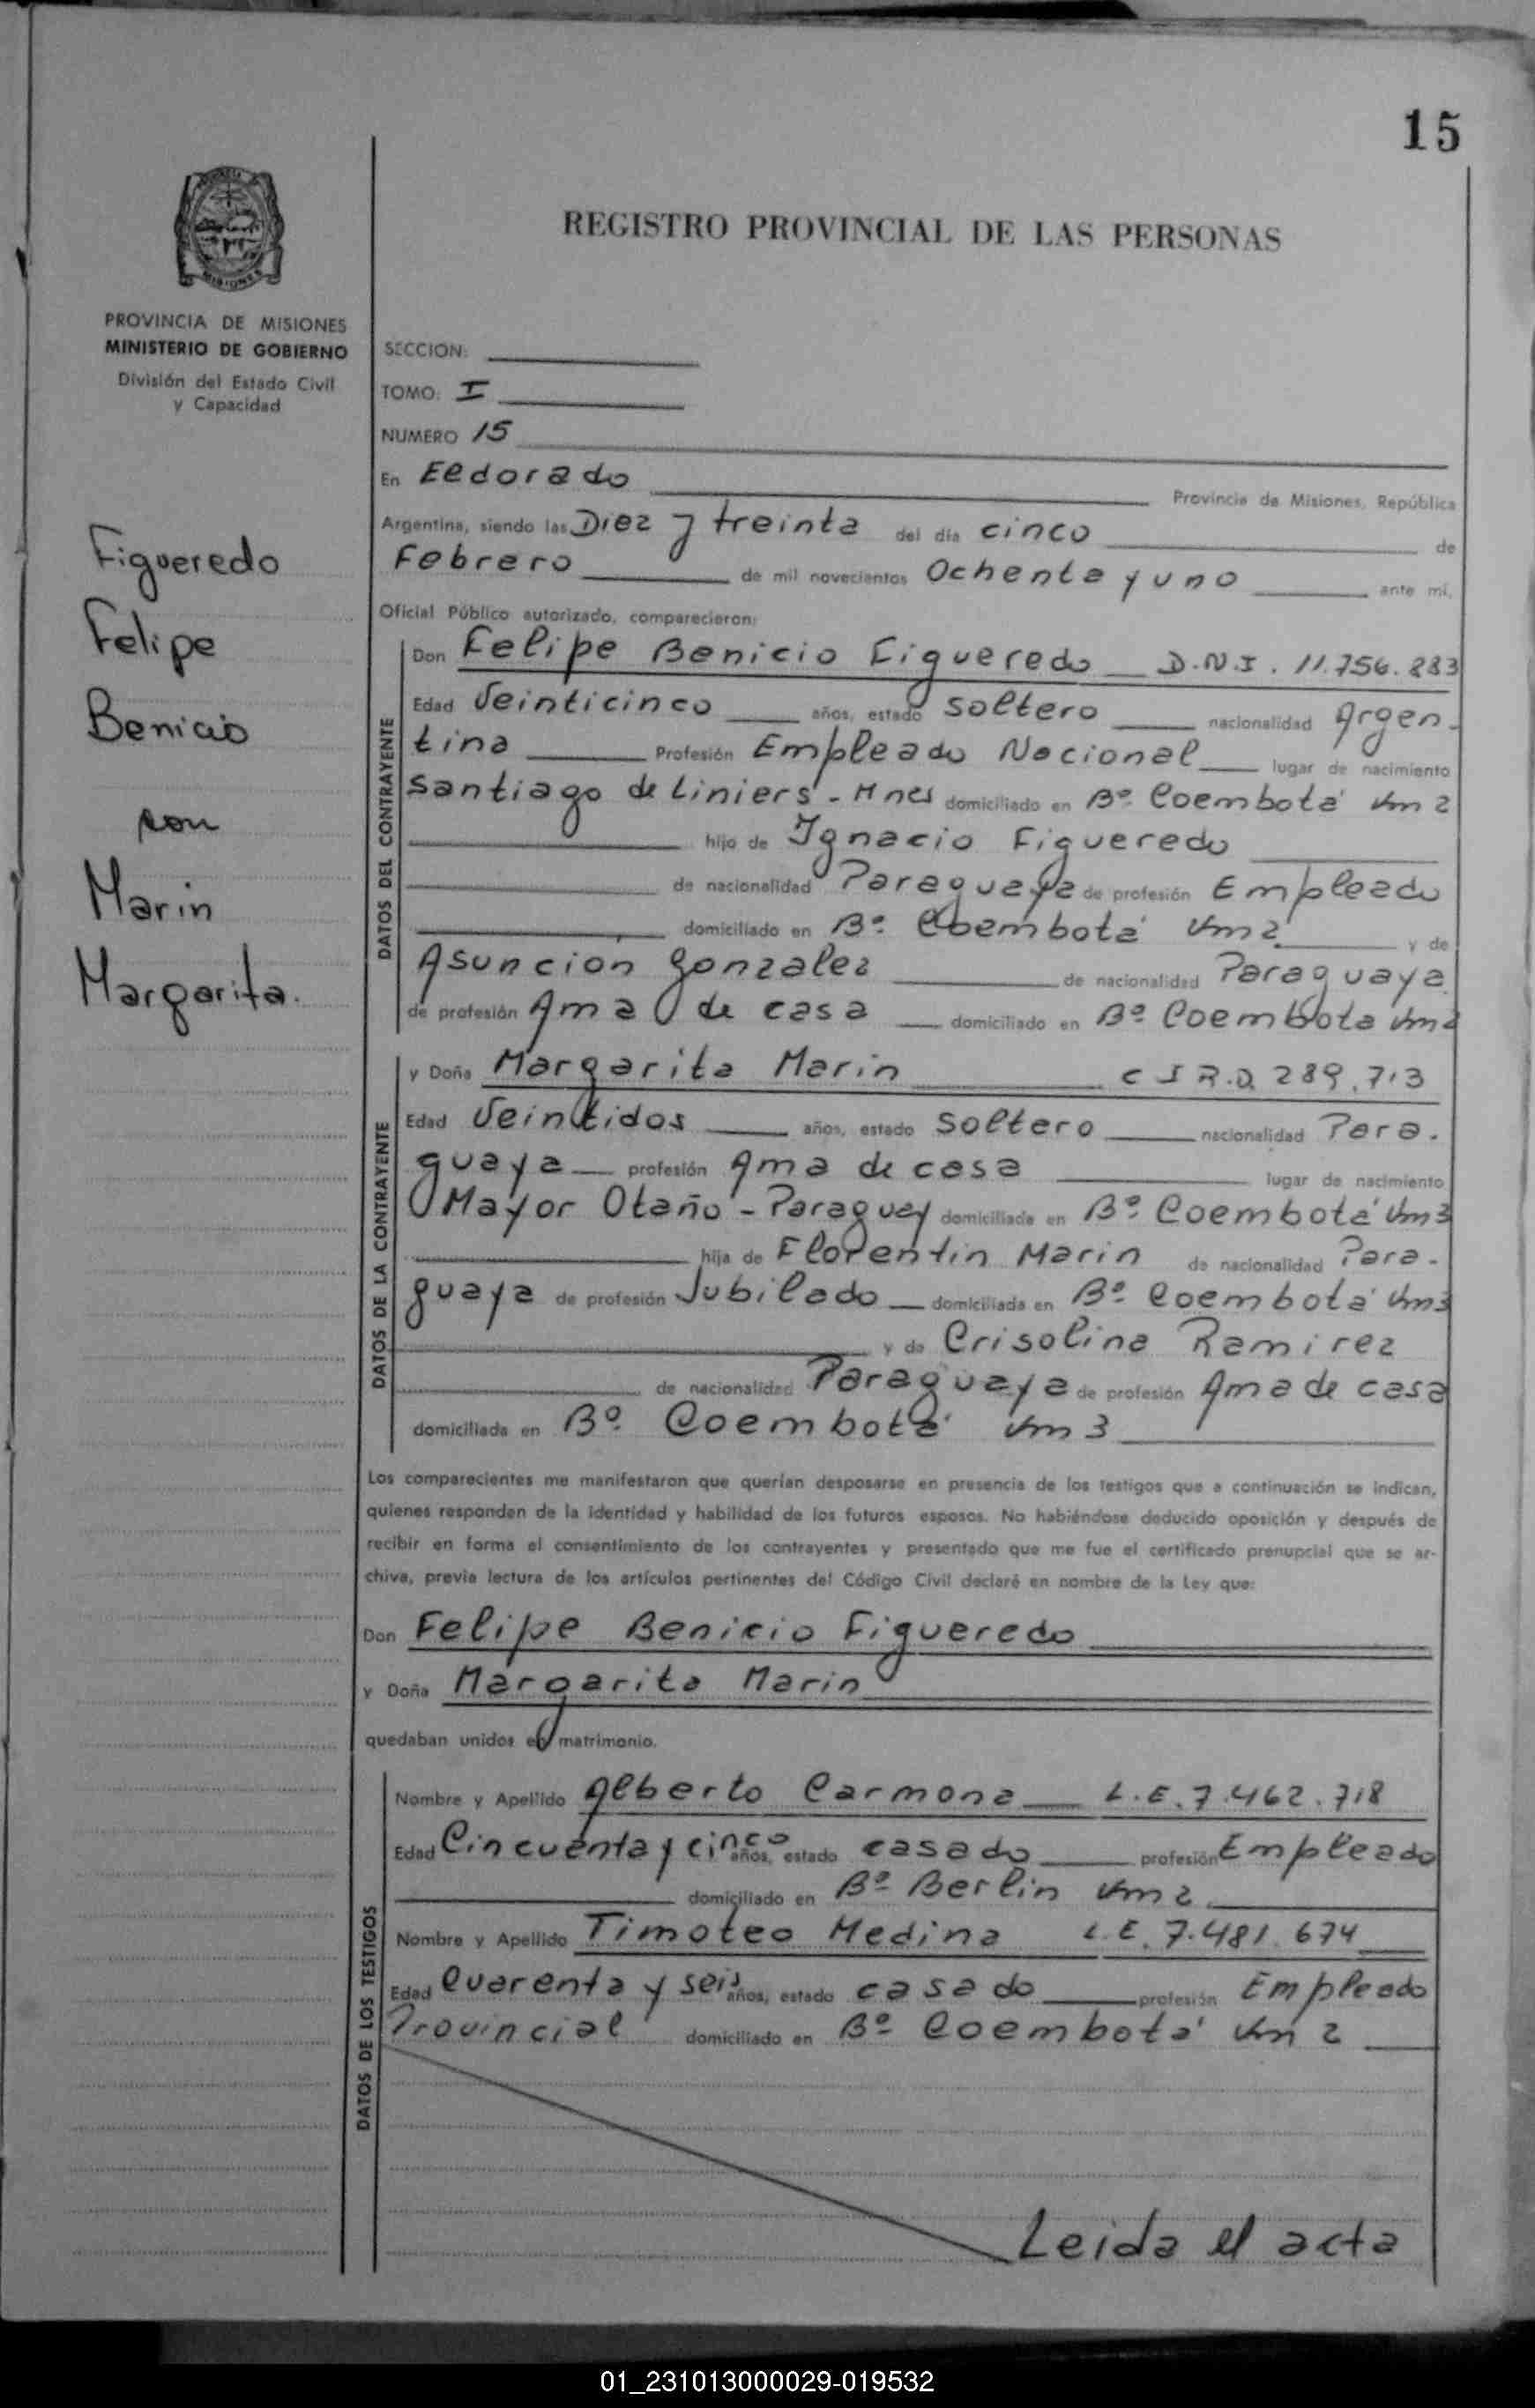 15
REGISTRO PROVINCIAL DE LAS PERSONAS
PROVINCIA DE MISIONES
MINISTERIO DE GOBIERNO
División del Estado Civil
y Capacidad
Figueredo
Felipe
Benicio
con
Marin
Margarita.
SECCION:
TOMO: I
NUMERO 15
En Eldorado Provincia de Misiones, República
Argentina, siendo las Diez y treinta del día cinco de
Febrero de mil novecientos Ochenta y uno ante mi,
Oficial Público autorizado, comparecieron:
DATOS DEL CONTRAYENTE
Don Felipe Benicio Figueredo D.N.I. 11.756.883
Edad Veinticinco años, estado Soltero nacionalidad Argen-
tina Profesión Empleado Nacional lugar de nacimiento
Santiago de Liniers - Mnes domiciliado en Bº Coembotá Km 2
hijo de Ignacio Figueredo
de nacionalidad Paraguaya de profesión Empleado
domiciliado en Bº Coembotá Km 2 y de
Asunción Gonzalez de nacionalidad Paraguaya
de profesión Ama de casa domiciliado en Bº Coembota Km 2
DATOS DE LA CONTRAYENTE
y Doña Margarita Marin C I R.P. 289.713
Edad Veintidos años, estado Soltero nacionalidad Para-
guaya profesión Ama de casa lugar de nacimiento
Mayor Otaño - Paraguay domiciliada en Bº Coembotá Km 3
hija de Florentin Marin de nacionalidad Para-
guaya de profesión Jubilado domiciliada en Bº Coembotá Km 3
y de Crisolina Ramirez
de nacionalidad Paraguaya de profesión Ama de casa
domiciliada en Bº Coembotá Km 3
Los comparecientes me manifestaron que querían desposarse en presencia de los testigos que a continuación se indican,
quienes responden de la identidad y habilidad de los futuros esposos. No habiéndose deducido oposición y después de
recibir en forma el consentimiento de los contrayentes y presentado que me fue el certificado prenupcial que se ar-
chiva, previa lectura de los artículos pertinentes del Código Civil declaré en nombre de la Ley que:
Don Felipe Benicio Figueredo
y Doña Margarita Marin
quedaban unidos en matrimonio.
DATOS DE LOS TESTIGOS
Nombre y Apellido Alberto Carmona L.E. 7.462.718
Edad Cincuenta y cinco años, estado casado profesión Empleado
domiciliado en Bº Berlin Km 2
Nombre y Apellido Timoteo Medina L.E. 7.481.674
Edad Cuarenta y seis años, estado casado profesión Empleado
Provincial domiciliado en Bº Coembotá Km 2
Leida el acta
01_231013000029-019532